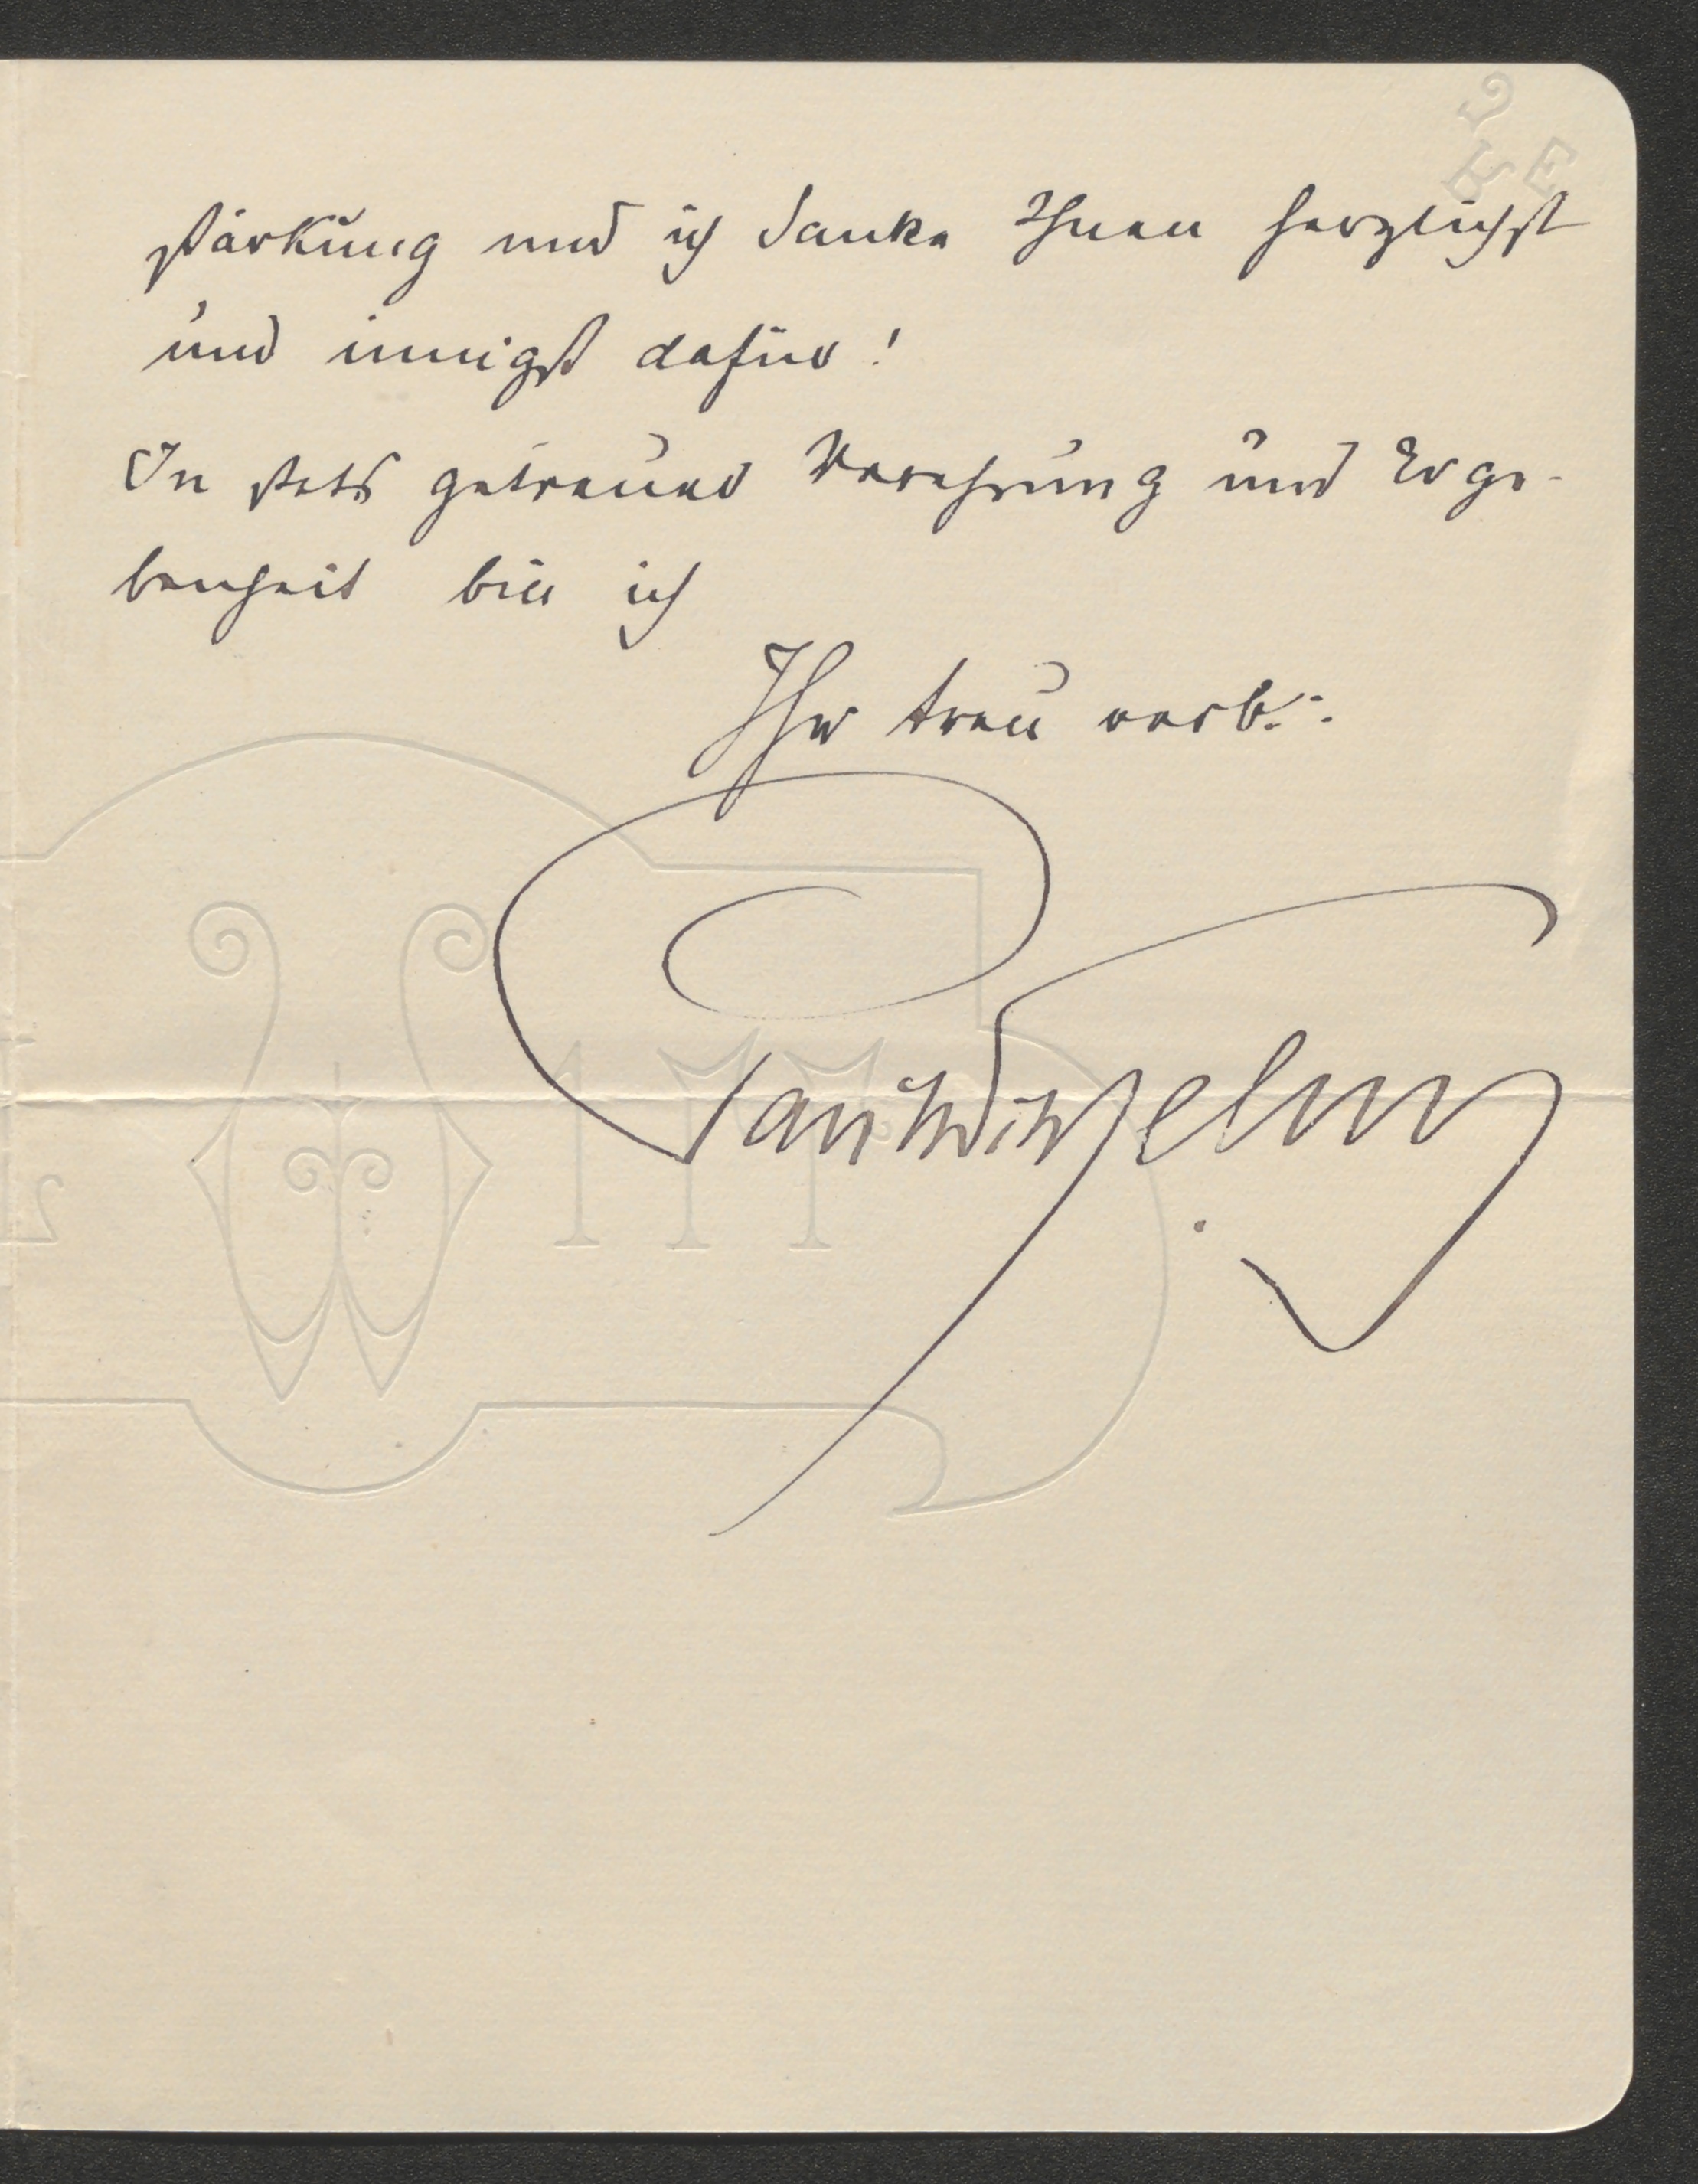 stärkung und ich danke Ihnen herzlichst
und innigst dafür!
In stets getreuer Verehrung und Erge-
benheit bin ich
Ihr treu verb.: